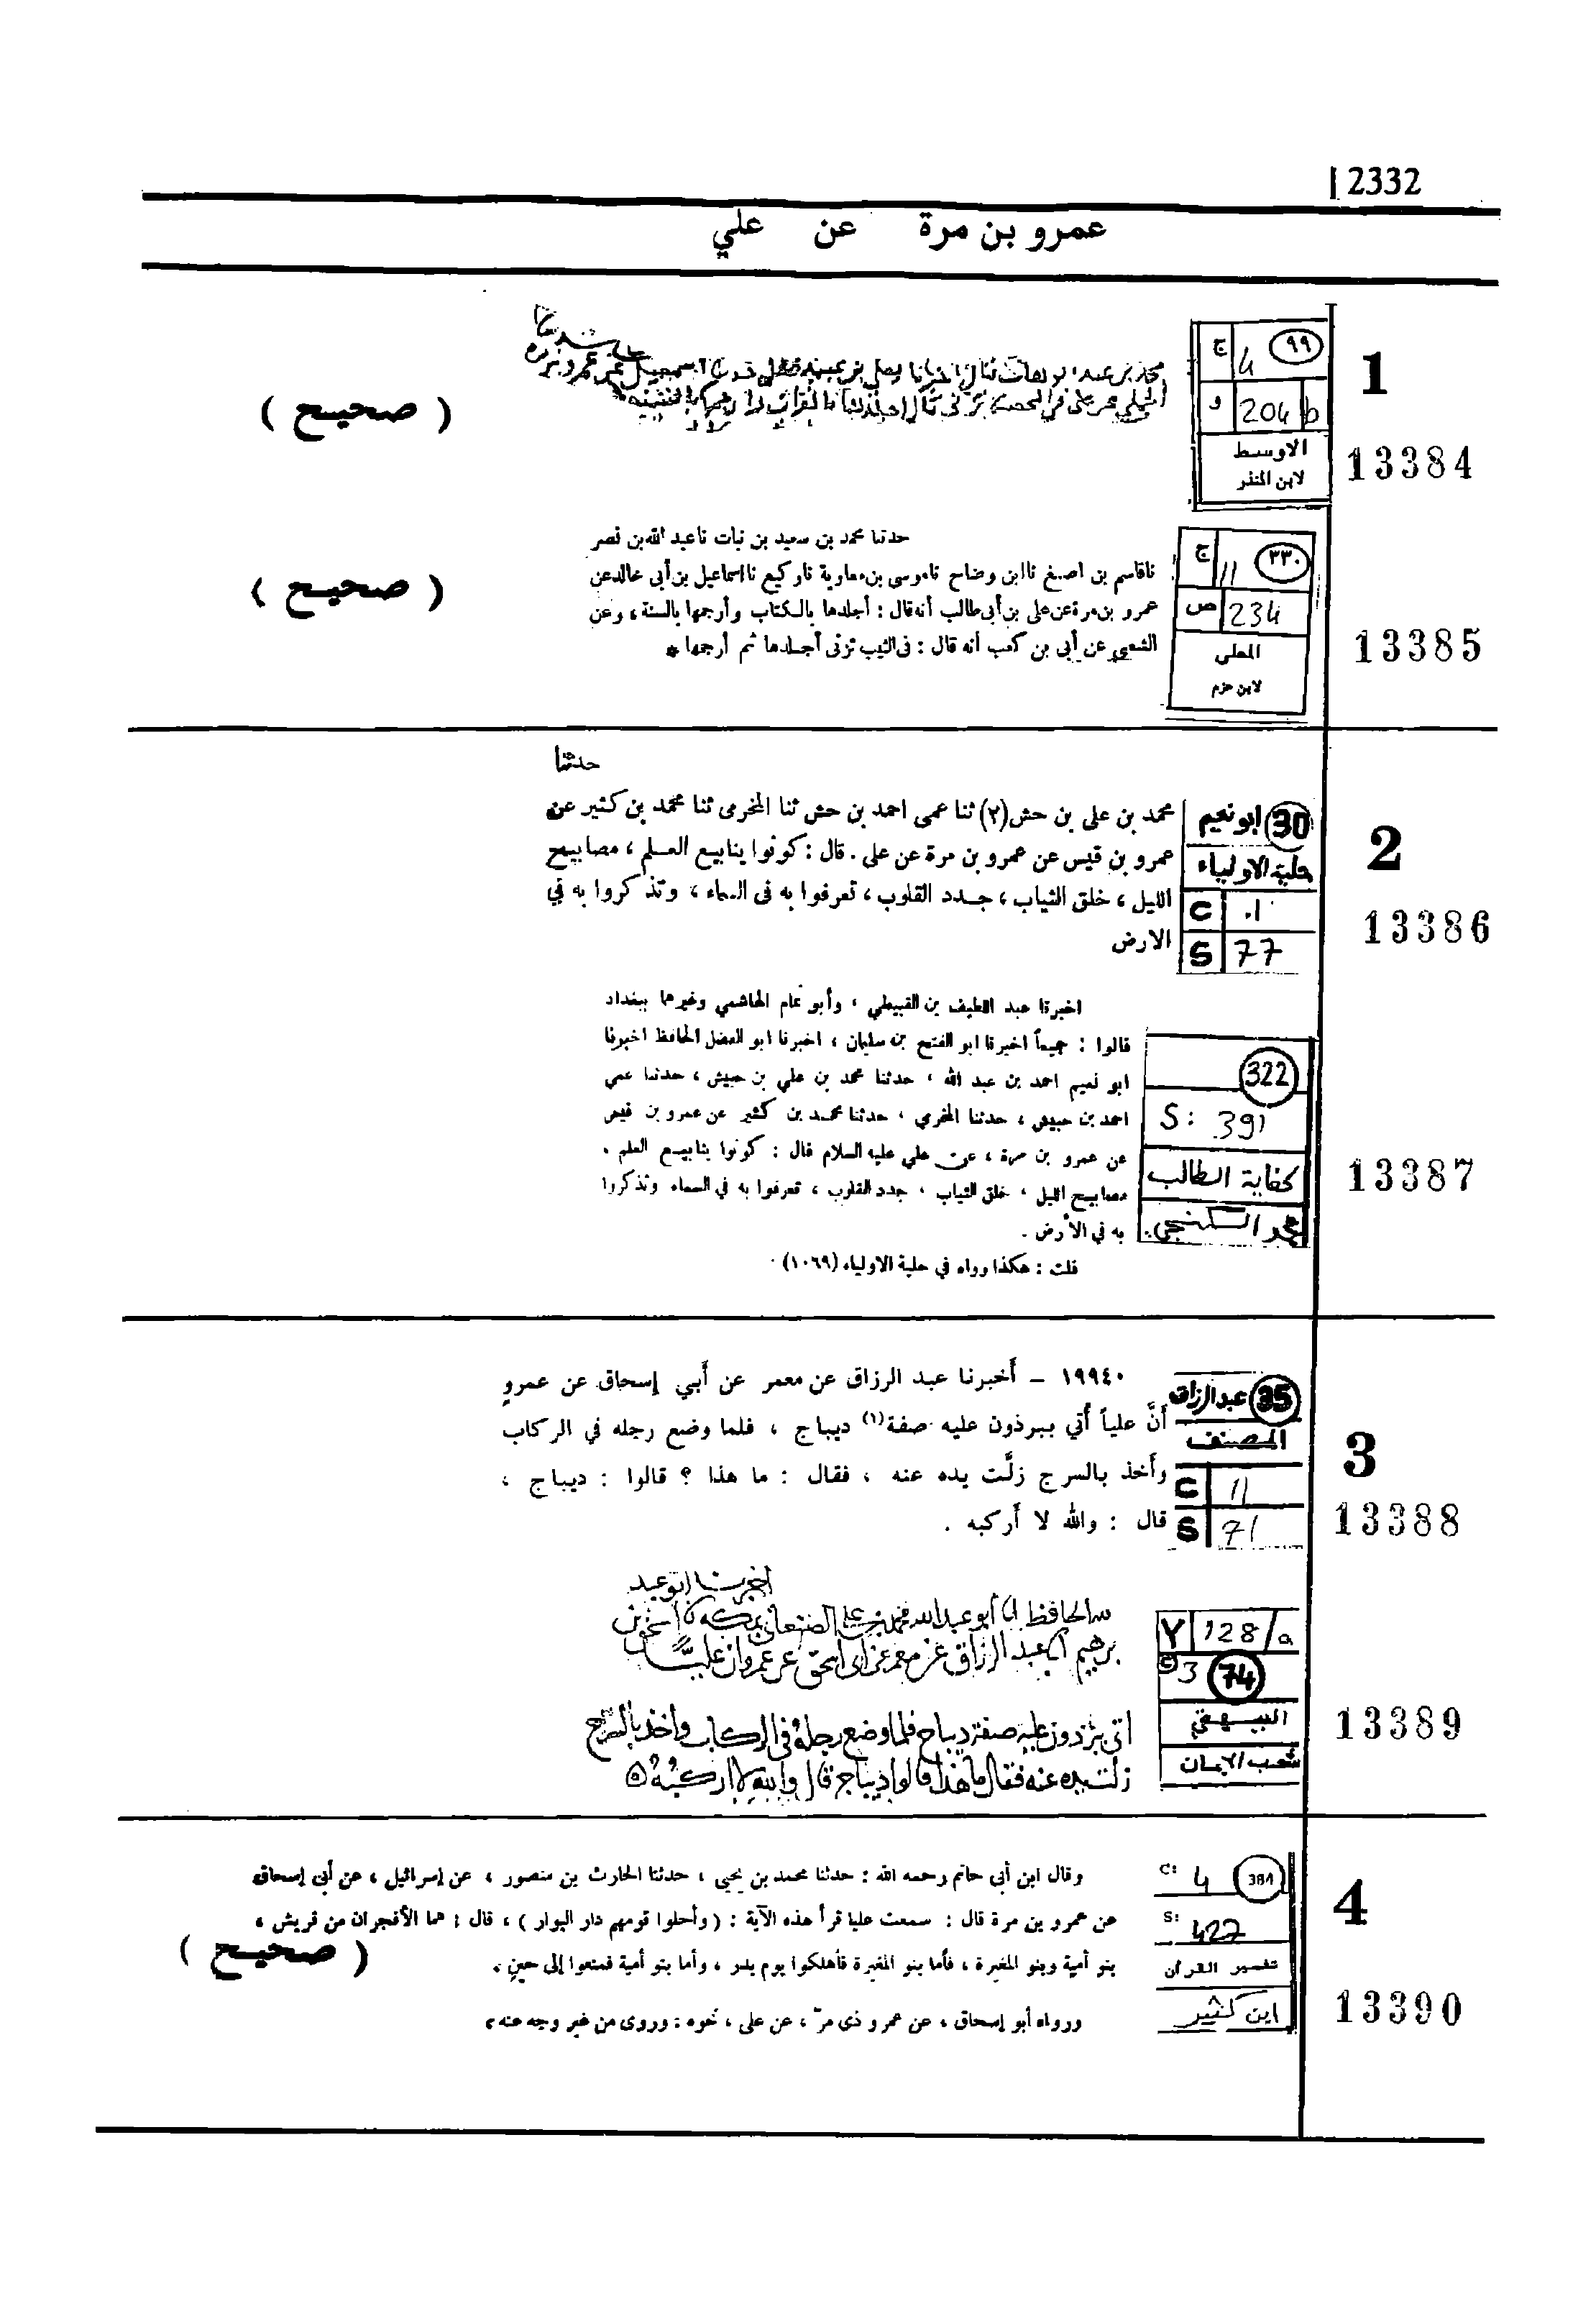 2332
عمرو بن مرة عن علي
1
13384
ج 4 ٩٩
و 204 b
الاوسط
لابن المنذر
حدثنا
( صحيح )
13385
ج 11 ٣٣٠
ص 234
المحلى
لابن حزم
حدثنا محمد بن سعيد بن نبات نا عبد الله بن نصر
نا قاسم بن اصبغ نا ابن وضاح نا موسى بن معاوية نا وكيع نا اسماعيل بن أبى خالد عن
عمرو بن مرة عن على بن أبى طالب أنه قال : أجلدها بالكتاب وأرجمها بالسنة ، وعن
الشعبى عن أبى بن كعب أنه قال : فى الثيب تزنى أجلدها ثم أرجمها *
( صحيح )
2
13386
30 ابو نعيم
حلية الاولياء
C 1.
S 77
حدثنا
محمد بن على بن حش (٢) ثنا عمى احمد بن حش ثنا المخرمى ثنا محمد بن كثير عن
عمرو بن قيس عن عمرو بن مرة عن على . قال : كونوا ينابيع العلم ، مصابيح
الليل ، خلق الثياب ، جدد القلوب ، تعرفوا به فى السماء ، وتذكروا به في
الارض
13387
322
S: 391
كفاية الطالب
محمد الكنجي
اخبرنا عبد اللطيف بن القبيطي ، وأبو تمام الهاشمي وغيرهما ببغداد
قالوا : جميعاً اخبرنا ابو الفتح بن سليمان ، اخبرنا ابو الفضل الحافظ اخبرنا
ابو نعيم احمد بن عبد الله ، حدثنا محمد بن علي بن حبيش ، حدثنا عمي
احمد بن حبيش ، حدثنا المخرمي ، حدثنا محمد بن كثير عن عمرو بن قيس
عن عمرو بن مرة ، عن علي عليه السلام قال : كونوا ينابيع العلم .
مصابيح الليل ، خلق الثياب ، جدد القلوب ، تعرفوا به في السماء وتذكروا
به في الأرض .
قلت : هكذا رواه في حلية الاولياء (١٠٦٩) .
3
13388
35 عبدالرزاق
المصنف
C 11
S 71
١٩٩٤٠ – أخبرنا عبد الرزاق عن معمر عن أبي إسحاق عن عمرو
أنَّ علياً أتي ببرذون عليه صفة (١) ديباج ، فلما وضع رجله في الركاب
وأخذ بالسرج زلَّت يده عنه ، فقال : ما هذا ؟ قالوا : ديباج ،
قال : والله لا أركبه .
13389
Y 128/a
© 3 74
البيهقي
شعب الايمان
اخبرنا ابو عبد
الله الحافظ انا ابو عبد الله محمد بن علي الصنعاني بمكة نا اسحق بن
ابرهيم انا عبد الرزاق عن معمر عن ابى اسحق عن عمرو ان عليًّا
اتى ببرذون عليه صفة ديباج فلما وضع رجله فى الركاب واخذ بالسرج
زلت يده عنه فقال ما هذا قالوا ديباج قال والله لا اركبه
4
13390
C: 4 381
S: 427
تفسير القرآن
ابن كثير
وقال ابن أبي حاتم رحمه الله : حدثنا محمد بن يحيى ، حدثنا الحارث بن منصور ، عن إسرائيل ، عن أبى إسحاق
عن عمرو بن مرة قال : سمعت عليا قرأ هذه الآية : ( وأحلوا قومهم دار البوار ) ، قال : هما الأفجران من قريش ،
بنو أمية وبنو المغيرة ، فأما بنو المغيرة فأهلكوا يوم بدر ، وأما بنو أمية فمتعوا إلى حين .
ورواه أبو إسحاق ، عن عمرو ذى مرّ ، عن على ، نحوه : وروى من غير وجه عنه ،
( صحيح )